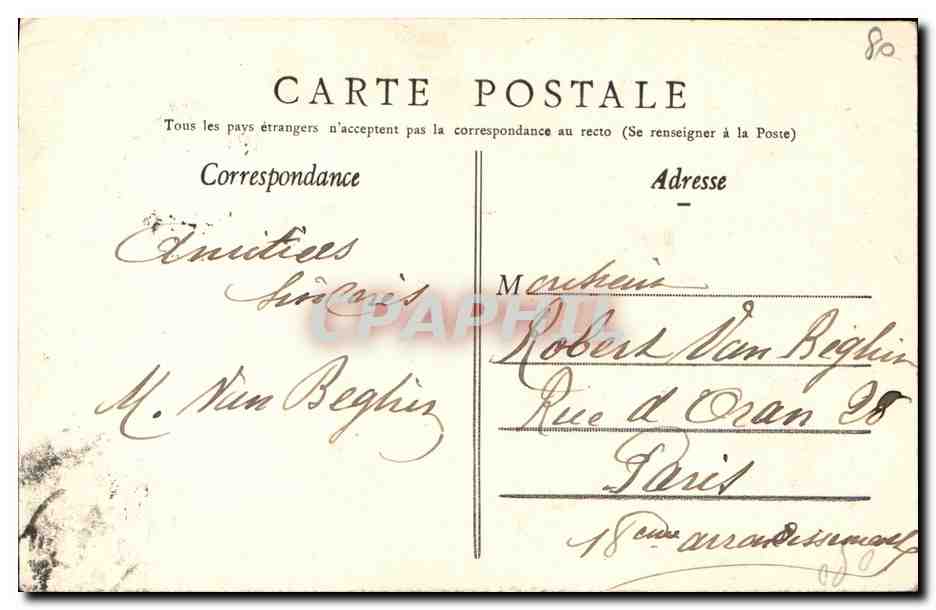 80
CARTE POSTALE
Tous les pays étrangers n'acceptent pas la correspondance au recto (Se renseigner à la Poste)
Correspondance
Amitiées
Sincères
M. Van Beghin
Adresse
Monsieur
Robert Van Beghin
Rue d Oran 28
Paris
18eme arrondissement
CPAPHIL